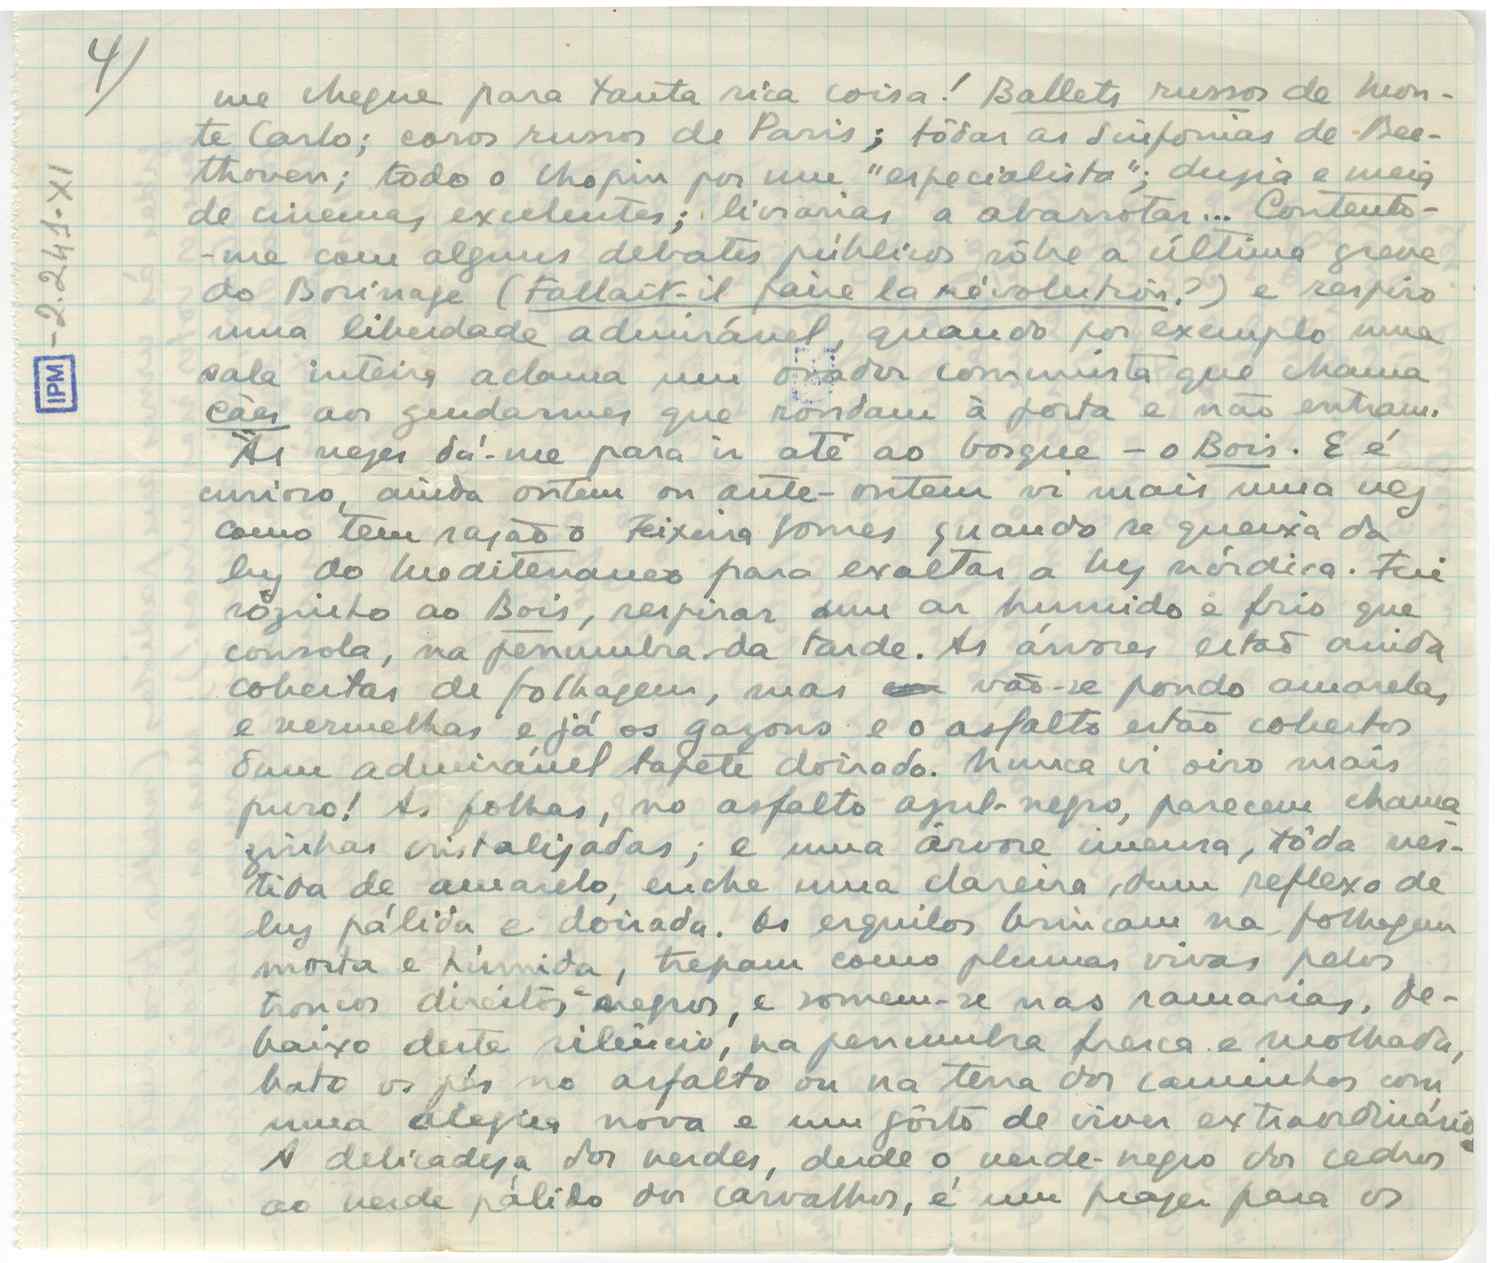 4/
me chegue para tanta rica coisa! Ballets russos de Mon-
te Carlo; coros russos de Paris; tôdas as sinfonias de Bee-
thoven; todo o Chopin por um "especialista"; duzia e meia
de cinemas excelentes; livrarias a abarrotar... Contento-
-me com alguns debates públicos sôbre a última greve
do Borinage (Fallait-il faire la révolution?) e respiro
uma liberdade admirável, quando por exemplo uma
sala inteira aclama um orador comunista que chama
cães aos gendarmes que rondam à porta e não entram.
Às vezes dá-me para ir até ao bosque - o Bois. E é
curioso, ainda ontem ou ante-ontem vi mais uma vez
como tem razão o Teixeira Gomes quando se queixa da
luz do Mediterraneo para exaltar a luz nórdica. Fui
sòzinho ao Bois, respirar um ar humido e frio que
consola, na penumbra da tarde. As árvores estão ainda
cobertas de folhagem, mas vão-se pondo amarelas
e vermelhas e já os gazons e o asfalto estão cobertos
dum admirável tapete doirado. Nunca vi oiro mais
puro! As folhas, no asfalto azul-negro, parecem chama
zinhas cristalizadas; e uma árvore imensa, tôda ves-
tida de amarelo, enche uma clareira dum reflexo de
luz pálida e doirada. Os esquilos brincam na folhagem
morta e húmida, trepam como plumas vivas pelos
troncos direitos e negros, e somem-se nas ramarias. De-
baixo deste silêncio, na penumbra fresca e molhada,
bato os pés no asfalto ou na terra dos caminhos com
uma alegria nova e um gôsto de viver extraordinário.
A delicadeza dos verdes, desde o verde-negro dos cedros
ao verde pálido dos carvalhos, é um prazer para os
IPM -2.241.XI